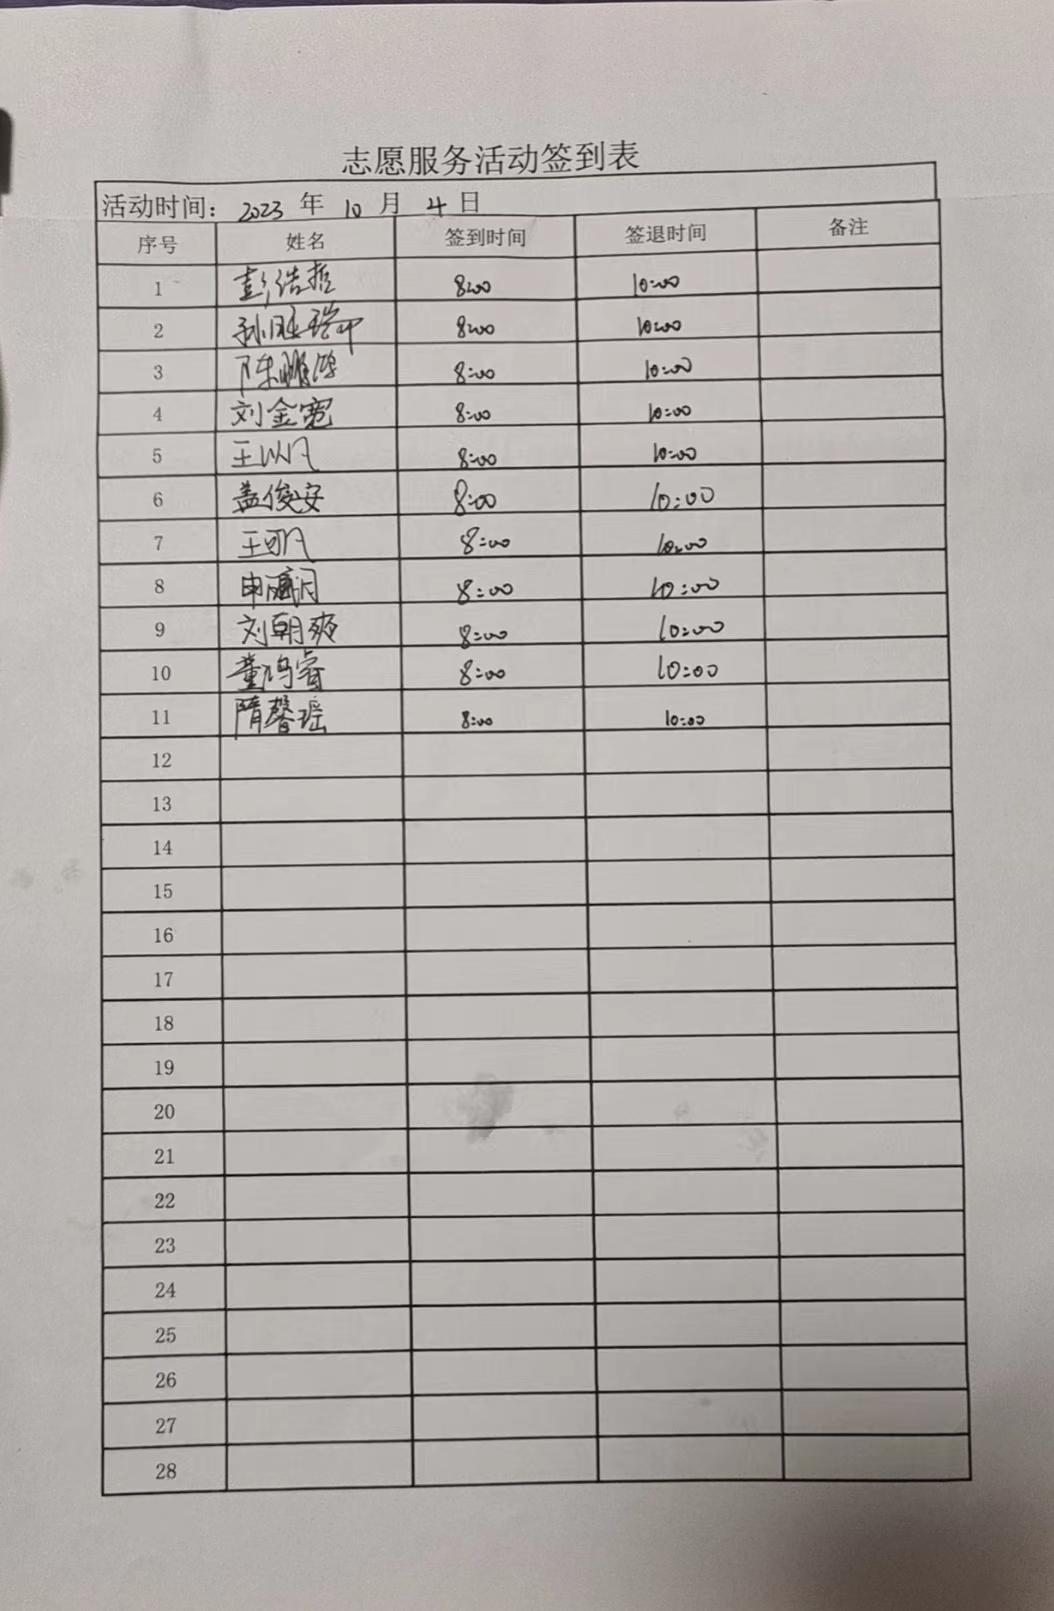 志愿服务活动签到表
活动时间： 2023 年 10 月 4 日
序号 姓名 签到时间 签退时间 备注
1 彭浩哲 8:00 10:00
2 孙 8:00 10:00
3 陈鹏鸿 8:00 10:00
4 刘金宽 8:00 10:00
5 王以凡 8:00 10:00
6 盖俊安 8:00 10:00
7 王可凡 8:00 10:00
8 申 8:00 10:00
9 刘朝爽 8:00 10:00
10 董鸿睿 8:00 10:00
11 隋馨瑶 8:00 10:00
12
13
14
15
16
17
18
19
20
21
22
23
24
25
26
27
28